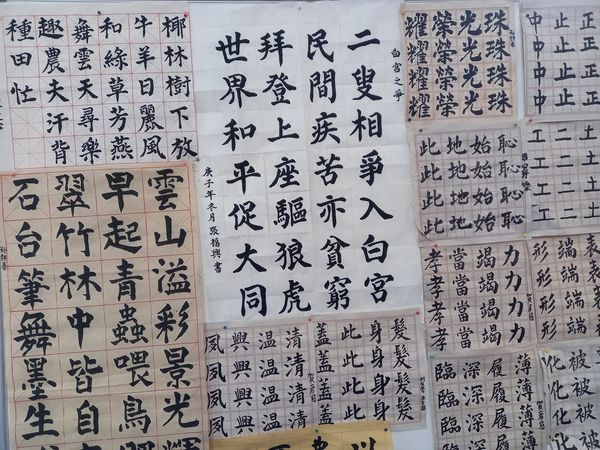 椰林樹下放
牛羊日麗風
和綠草芳燕
舞雲天尋樂
趣農夫汗背
種田忙
白宮之爭
二叟相爭入白宮
民間疾苦亦貧窮
拜登上座驅狼虎
世界和平促大同
庚子年冬月
雲山溢彩景光輝
早起青蟲喂鳥
翠竹林中皆自
石台筆舞墨生
珠珠珠珠
光光光光
榮榮榮榮
耀耀耀耀
正正正正
止止止止
中中中中
恥恥恥恥
始始始始
地地地地
此此此此
土土土土
二二二二
工工工工
力力力力
竭竭竭竭
當當當當
孝孝孝孝
端端端端
形形形形
髮髮髮髮
身身身身
此此此此
蓋蓋蓋蓋
清清清清
温温温温
興興興興
夙夙夙夙
薄薄薄
履履履
深深深
臨臨臨
被被被
化化化